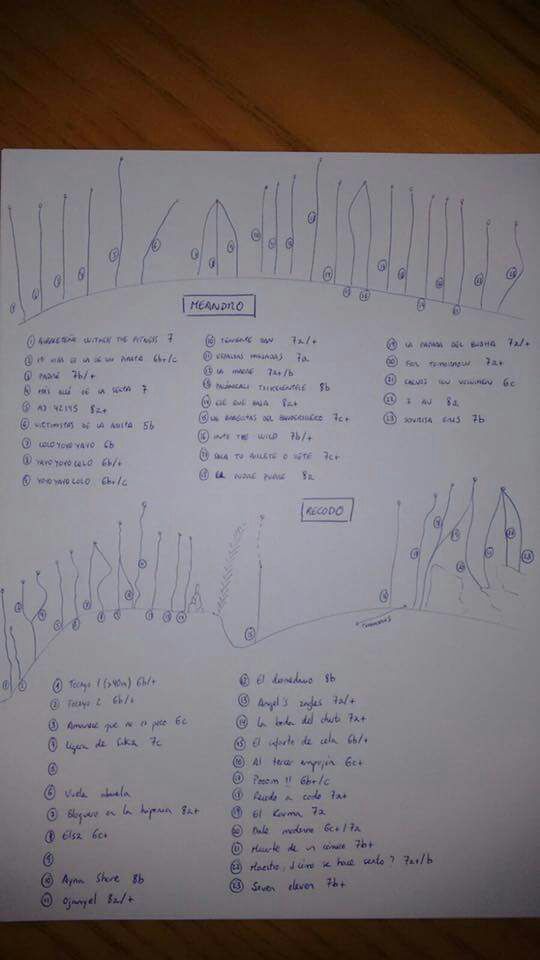 MEANDRO
① BURRETEÑA WITNES THE FITNESS 7
② MI VIDA ES LA DE UN PIRATA 6b+/c
③ PADRE 7b/+
④ MÁS ALLÁ DE LA SEXTA 7
⑤ AD 8a+
⑥ VICTIMISTAS DE LA 5b
⑦ LOLOYOYOYAYO 6b
⑧ YAYOYOYOLOLO 6b/+
⑨ YOYOYAYOLOLO 6b+/c
⑩ TENIENTE DAN 7a/+
⑪ ESPALDAS MOJADAS 7a
⑫ LA MADRE 7a+/b
⑬ TCHIKENTELE 8b
⑭ QUE BAJA 8a+
⑮ LA DEL BANDOLERO 7c+
⑯ INTO THE WILD 7b/+
⑰ SACA TU BILLETE O VETE 7c+
⑱ EL PUDRE 8a
⑲ LA PAPADA DEL BUDHA 7a/+
⑳ FOR TOMORROW 7a+
㉑ CALVOS CON VOLUMEN 6c
㉒ I AU 8a
㉓ SONRISA EIRES 7b
RECODO
① Tocayo 1 (>40m) 6b/+
② Tocayo 2 6b/+
③ Amanece que no es poco 6c
④ Ligera de 7c
⑤
⑥ Vuela abuela
⑦ Bloquero en la hiperia 8a+
⑧ Elsa 6c+
⑨
⑩ Ayna Shore 8b
⑪ Ojanyel 8a/+
⑫ El domedario 8b
⑬ Angel's angles 7a/+
⑭ La boda del chuti 7a+
⑮ El infarto de cela 6b/+
⑯ Al tercer empujón 6c+
⑰ Pooom !! 6b+/c
⑱ Recodo a codo 7a+
⑲ El Karma 7a
⑳ Dale moderno 6c+/7a
㉑ Muerte de un 7b+
㉒ Maestro, ¿cómo se hace sexto? 7a+/b
㉓ Seven eleven 7b+